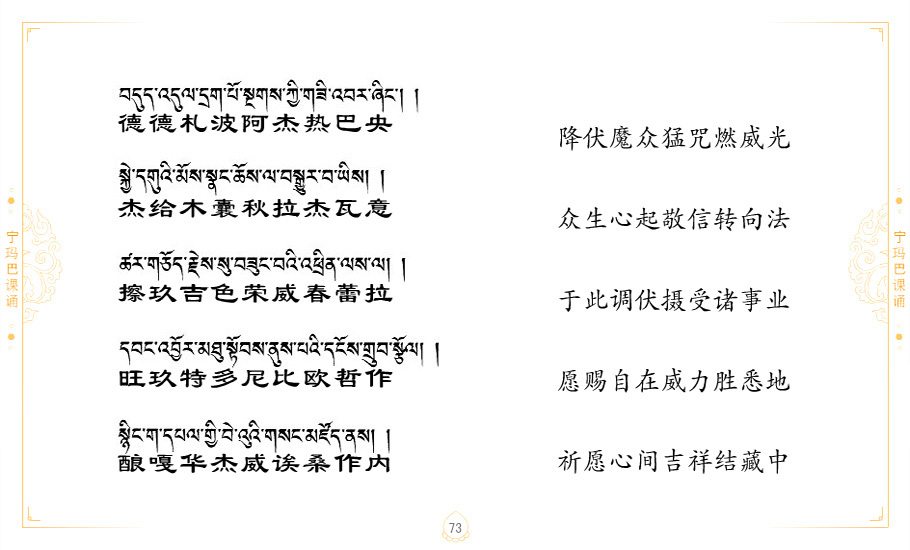 བདུད་འདུལ་དྲག་པོ་སྔགས་ཀྱི་གཟི་འབར་ཞིང་། །
德德札波阿杰热巴央
降伏魔众猛咒燃威光
སྐྱེ་དགུའི་མོས་སྣང་ཆོས་ལ་བསྒྱུར་བ་ཡིས། །
杰给木囊秋拉杰瓦意
众生心起敬信转向法
ཚར་གཅོད་རྗེས་སུ་བཟུང་བའི་འཕྲིན་ལས་ལ། །
擦玖吉色荣威春蕾拉
于此调伏摄受诸事业
དབང་འབྱོར་མཐུ་སྟོབས་ནུས་པའི་དངོས་གྲུབ་སྩོལ། །
旺玖特多尼比欧哲作
愿赐自在威力胜悉地
སྙིང་ག་དཔལ་གྱི་བེ་འུའི་གསང་མཛོད་ནས། །
酿嘎华杰威诶桑作内
祈愿心间吉祥结藏中
宁玛巴课诵
宁玛巴课诵
73